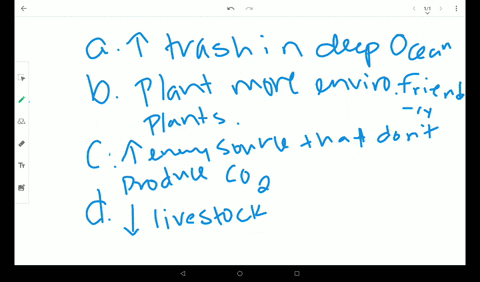 1/1
a. ↑ trash in deep Ocean
b. Plant more enviro. friend
-ly
Plants.
c. ↑ energy source that don't
produce CO2
d. ↓ livestock
Tr